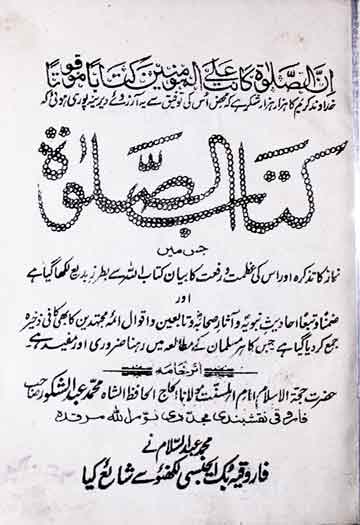 ان الصلوٰة كانت على المؤمنين كتابا موقوتا
خداوند کریم کا ہزار ہزار شکر ہے کہ محض اُس کی توفیق سے یہ آرزوئے دیرینہ پوری ہوئی کہ
کتاب الصلوٰۃ
جس میں
نماز کا تذکرہ اور اس کی عظمت و رفعت کا بیان کتاب اللہ سے بطرز بدیع لکھا گیا ہے
اور
ضمناً و تبعاً احادیث نبویہ و آثار صحابہ و تابعین و اقوال ائمہ مجتہدین کا بھی کافی ذخیرہ
جمع کر دیا گیا ہے جس کا ہر مسلمان کے مطالعہ میں رہنا ضروری اور مفید ہے
از خامہ
حضرت حجۃ الاسلام امام اہلسنت مولانا الحاج الحافظ الشاہ محمد عبد الشکور صاحب
فاروقی نقشبندی مجددی نور اللہ مرقدہ
محمد عبد السلام نے
فاروقیہ بک ایجنسی لکھنؤ سے شائع کیا